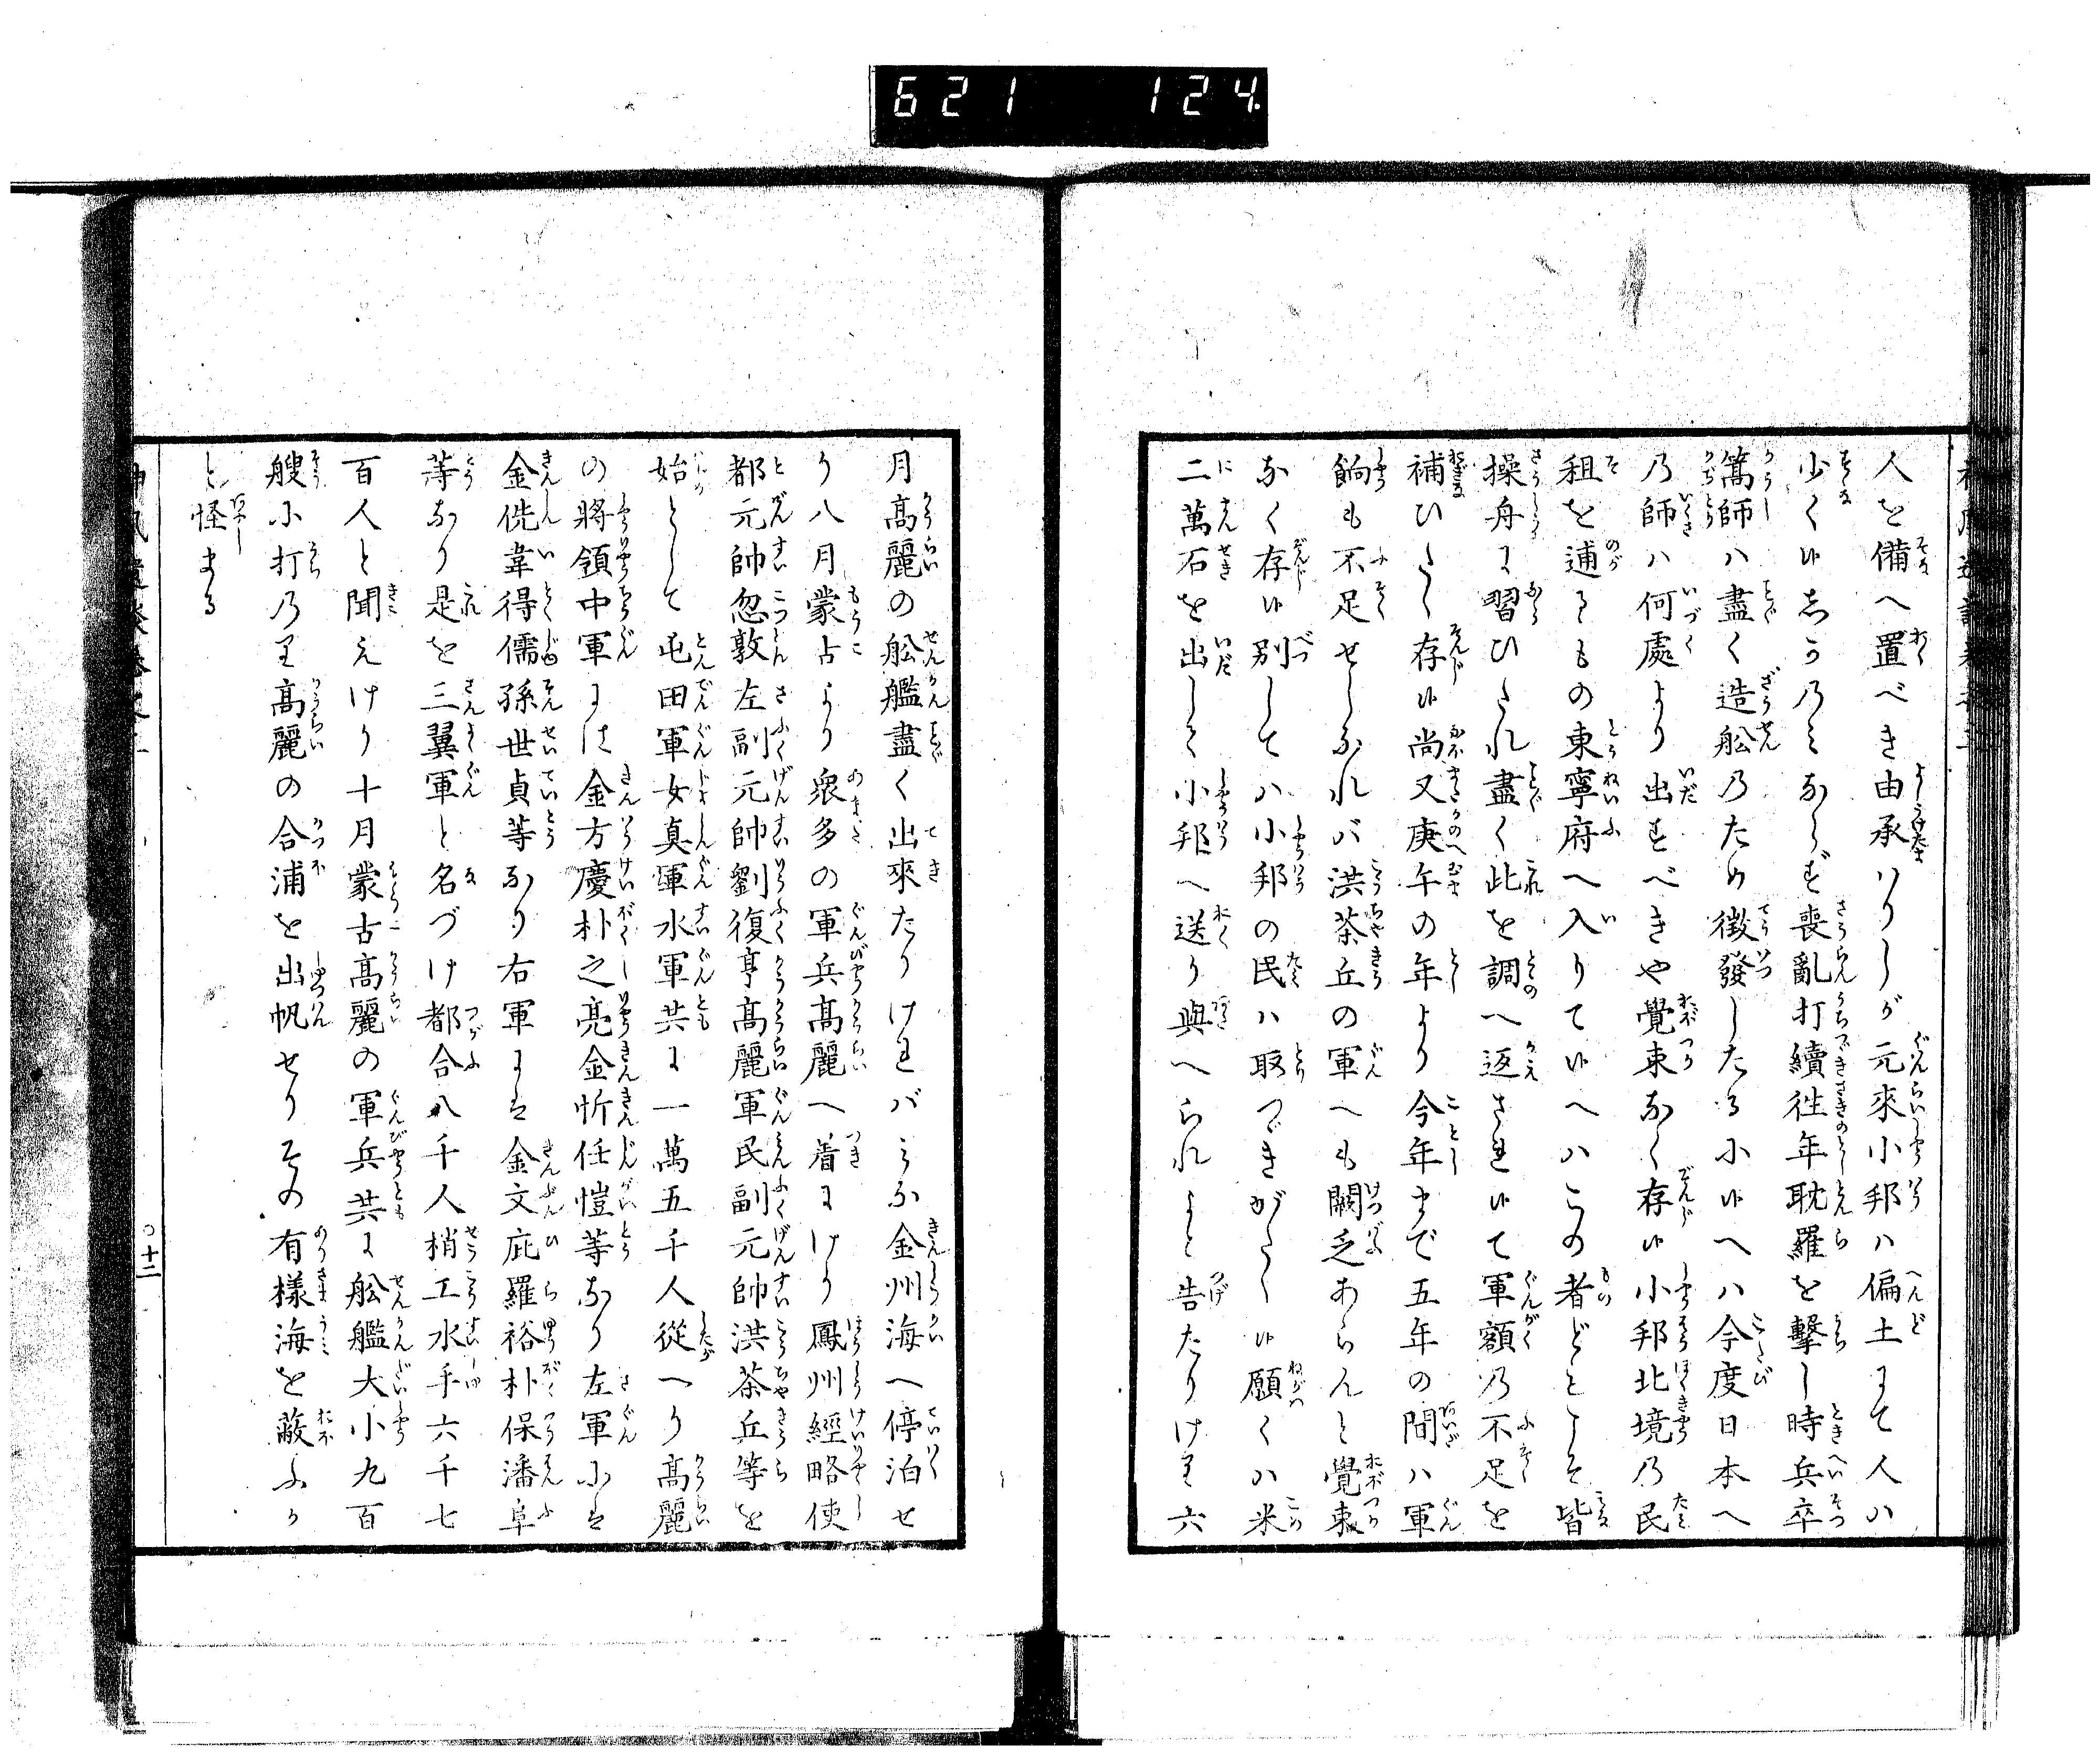 621 124
人を備へ置べき由承りしが元來小邦ハ偏土にて人ハ
少く候しかのミならず喪亂打續往年耽羅を擊し時兵卒
篙師ハ盡く造舩のため徴發したるに候へハ今度日本へ
の師ハ何處より出すべきや覺束なく存候小邦北境の民
租を逋るもの東寧府へ入りて候へハこの者どとこそ皆
操舟に習ひたれ盡く此を調へ返され候て軍額の不足を
補ひたく存候尚又庚午の年より今年まで五年の間ハ軍
餉も不足せしなれバ洪茶丘の軍へも闕乏あらんと覺束
なく存候別してハ小邦の民ハ取つゞきがたく候願くハ米
二萬石を出して小邦へ送り與へられよと告たりけり六
月高麗の舩艦盡く出來たりければミな金州海へ停泊せ
り八月蒙古より衆多の軍兵高麗へ着にけり鳳州經略使
都元帥忽敦左副元帥劉復亨高麗軍民副元帥洪茶丘等を
始として屯田軍女真軍水軍共に一萬五千人從へり高麗
の將領中軍には金方慶朴之亮金忻任愷等なり左軍には
金侁韋得儒孫世貞等なり右軍には金文庇羅裕朴保潘阜
等なり是を三翼軍と名づけ都合八千人梢工水手六千七
百人と聞えけり十月蒙古高麗の軍兵共に舩艦大小九百
艘に打のり高麗の合浦を出帆せりその有樣海を蔽ふか
と怪まる
十二